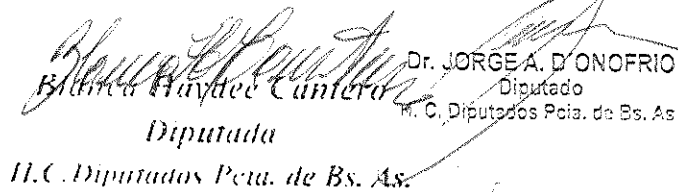 Blanca Haydee Cantero
Diputada
H.C. Diputados Pcia. de Bs. As.
Dr. JORGE A. D'ONOFRIO
Diputado
H. C. Diputados Pcia. de Bs. As